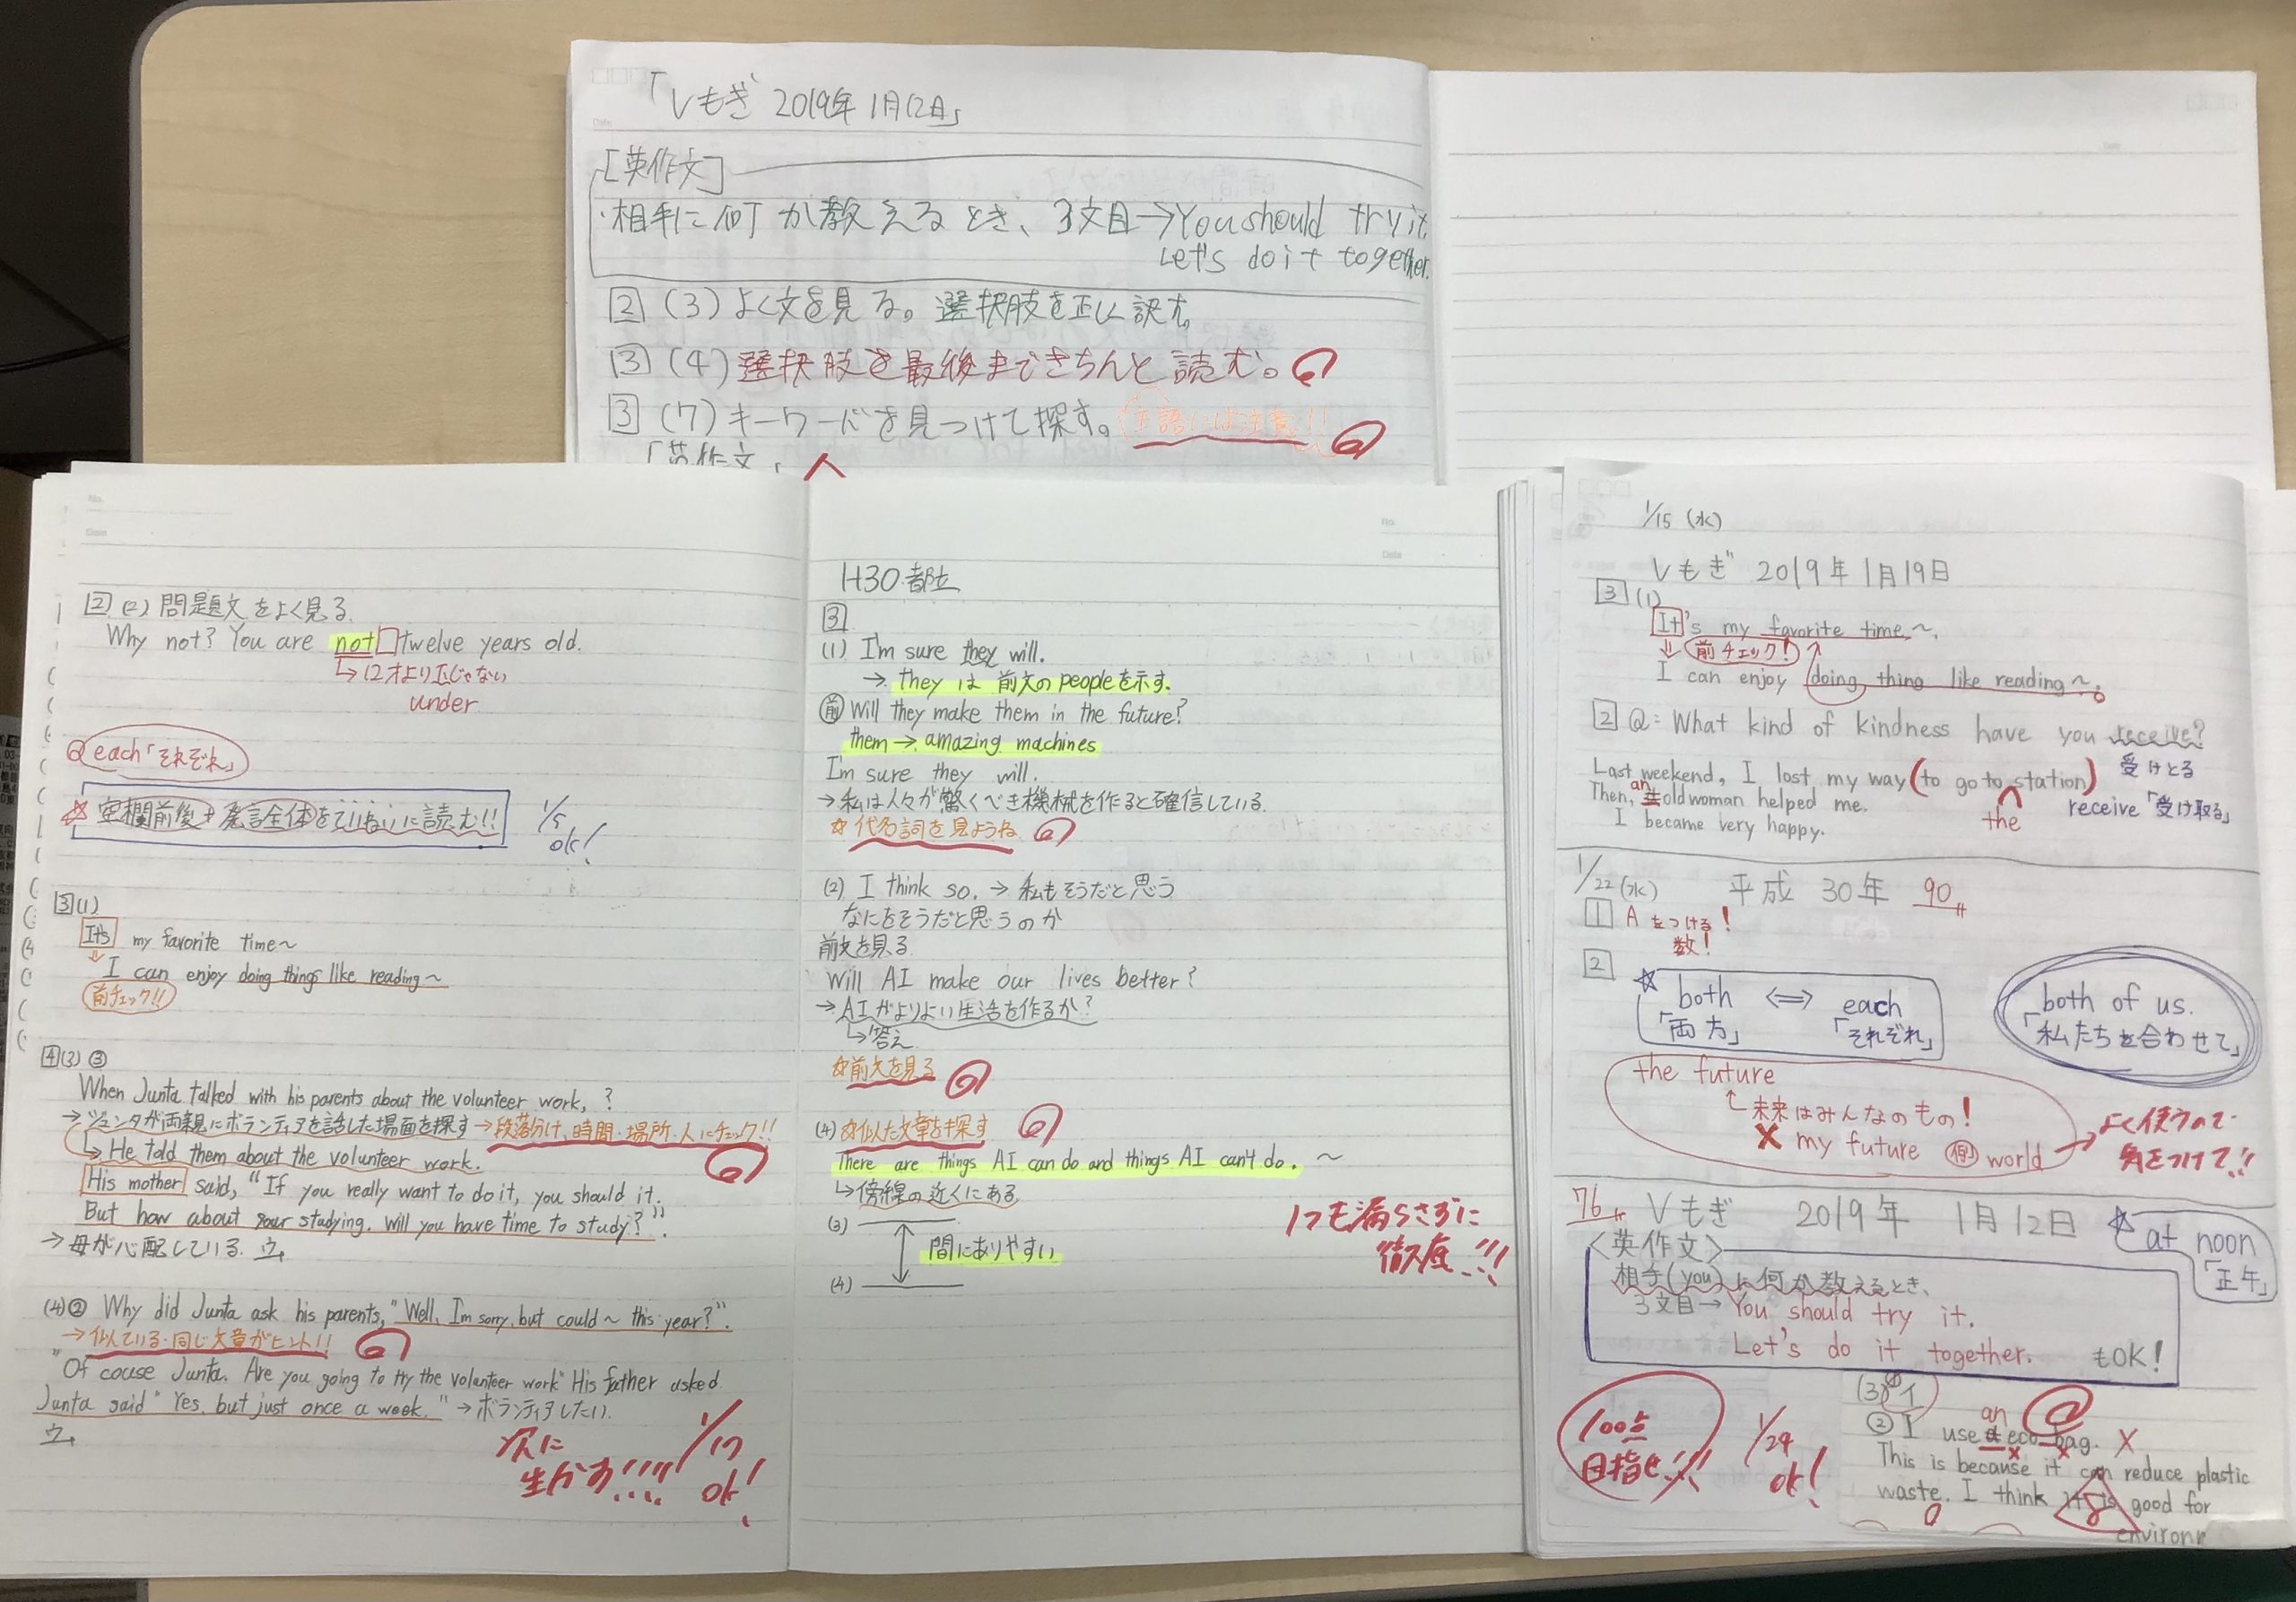 「Vもぎ 2019年 1月12日」
[英作文]
・相手に何か教えるとき、3文目→You should try it.
Let's do it together.
2 (3) よく文を見る。選択肢を正しく訳す。
3 (4) 選択肢を最後まできちんと読む。
3 (7) キーワードを見つけて探す。主語には注意!!
「英作文」
2 (2) 問題文をよく見る。
Why not? You are not □ twelve years old.
↳12才より下じゃない
under
each「それぞれ」
☆ 空欄前後+発言全体をていねいに読む!!
1/5
ok!
3 (1)
It's my favorite time~
⇓ I can enjoy doing things like reading~
前チェック!!
4 (3) ③
When Junta talked with his parents about the volunteer work, ?
→ジュンタが両親にボランティアを話した場面を探す→段落分け、時間・場所・人にチェック!!
↳He told them about the volunteer work.
His mother said, "If you really want to do it, you should it.
But how about your studying. Will you have time to study?".
→母が心配している. ウ
(4)② Why did Junta ask his parents, "Well, I'm sorry, but could~this year?".
→似ている・同じ文章がヒント!!
"Of couse Junta. Are you going to try the volunteer work" His father asked.
Junta said "Yes, but just once a week." →ボランティアしたい.
ウ
次に
生かす!!!!
1/17
ok!
H30.都立
3
(1) I'm sure they will.
→ they は 前文の peopleを示す.
前 Will they make them in the future?
them → amazing machines
I'm sure they will.
→私は人々が驚くべき機械を作ると確信している.
☆代名詞を見ようね
(2) I think so. → 私もそうだと思う
なにをそうだと思うのか
前文を見る.
Will AI make our lives better?
→AIがよりよい生活を作るか?
↳答え
☆前文を見る
(4) ☆似た文章を探す
There are things AI can do and things AI can't do. ~
↳傍線の近くにある
(3)
間にありやすい
(4)
1つも漏らさずに
徹底!!!
1/15 (水)
Vもぎ 2019年 1月19日
3 (1)
It's my favorite time~.
⇓ 前チェック!
I can enjoy doing thing like reading~.
2 Q: What kind of kindness have you receive?
受けとる
Last weekend, I lost my way (to go to station)
the
Then, an old woman helped me.
receive「受け取る」
I became very happy.
1/22 (水) 平成 30年 90
1 A をつける!
数!
2
☆ both ⇔ each
「両方」 「それぞれ」
both of us.
「私たちを合わせて」
the future
↳未来はみんなのもの!
× my future 例 world → よく使うので
気をつけて!!
76 Vもぎ 2019年 1月12日
☆ at noon
「正午」
<英作文>
相手(you)に何か教えるとき、
3文目→You should try it.
Let's do it together. もOK!
100点
目指せ!!!
1/24
ok!
(3)① イ
an
② I use a eco bag. ×
This is because it can reduce plastic
waste. I think it is good for